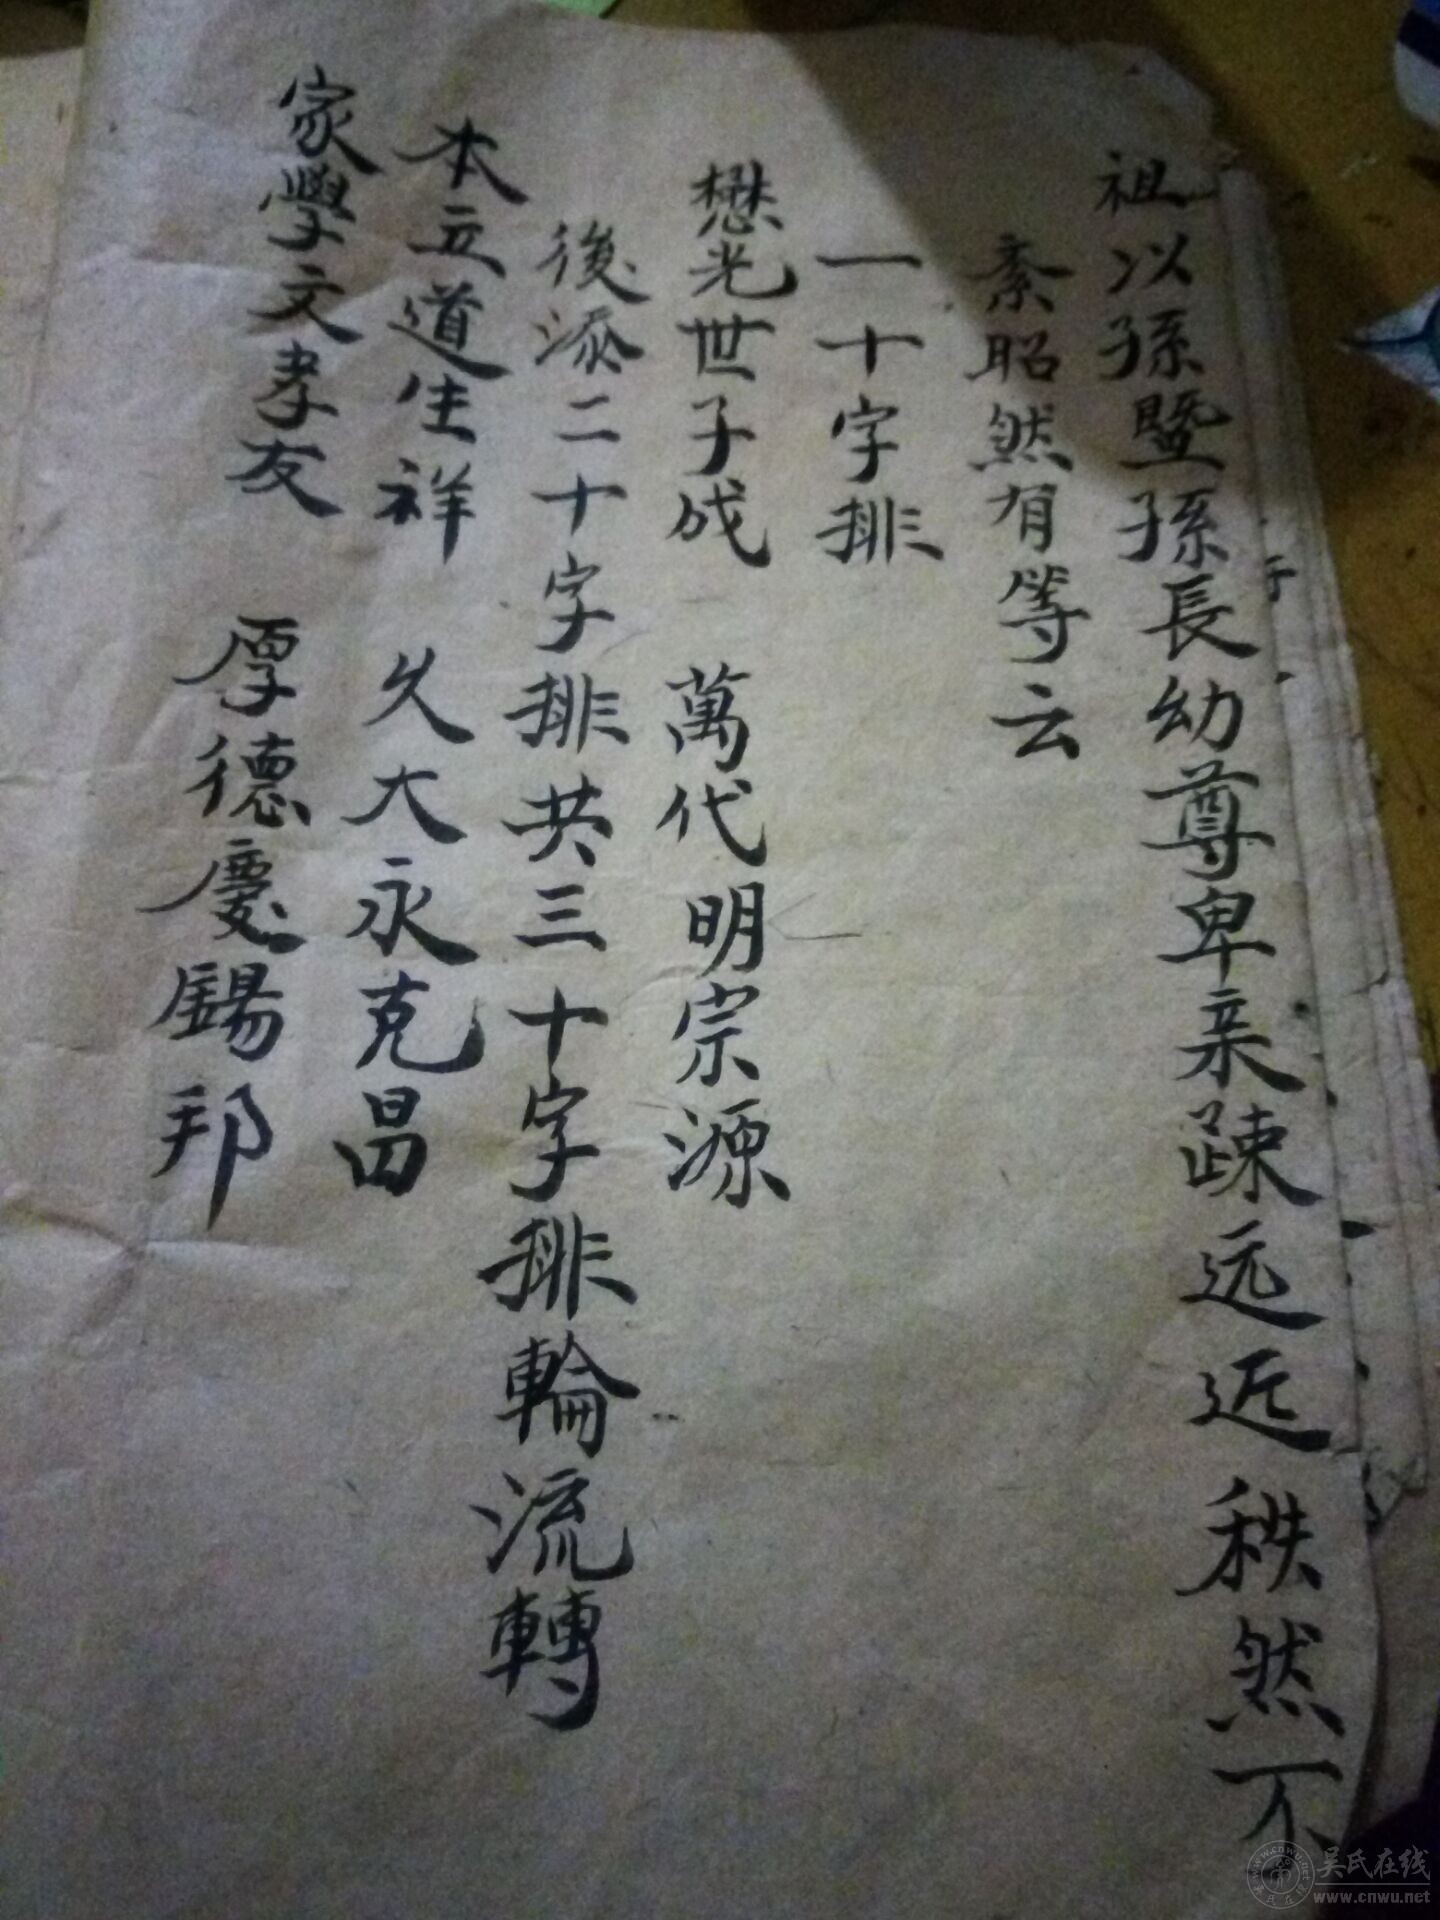 祖以孫暨孫長幼尊卑亲疎远近秩然不
紊昭然有等云
一十字排
懋光世子成　萬代明宗源
後添二十字排共三十字排輪流轉
本立道生祥　久大永克昌
家學文孝友　厚德慶錫邦
吴氏在线
www.cnwu.net